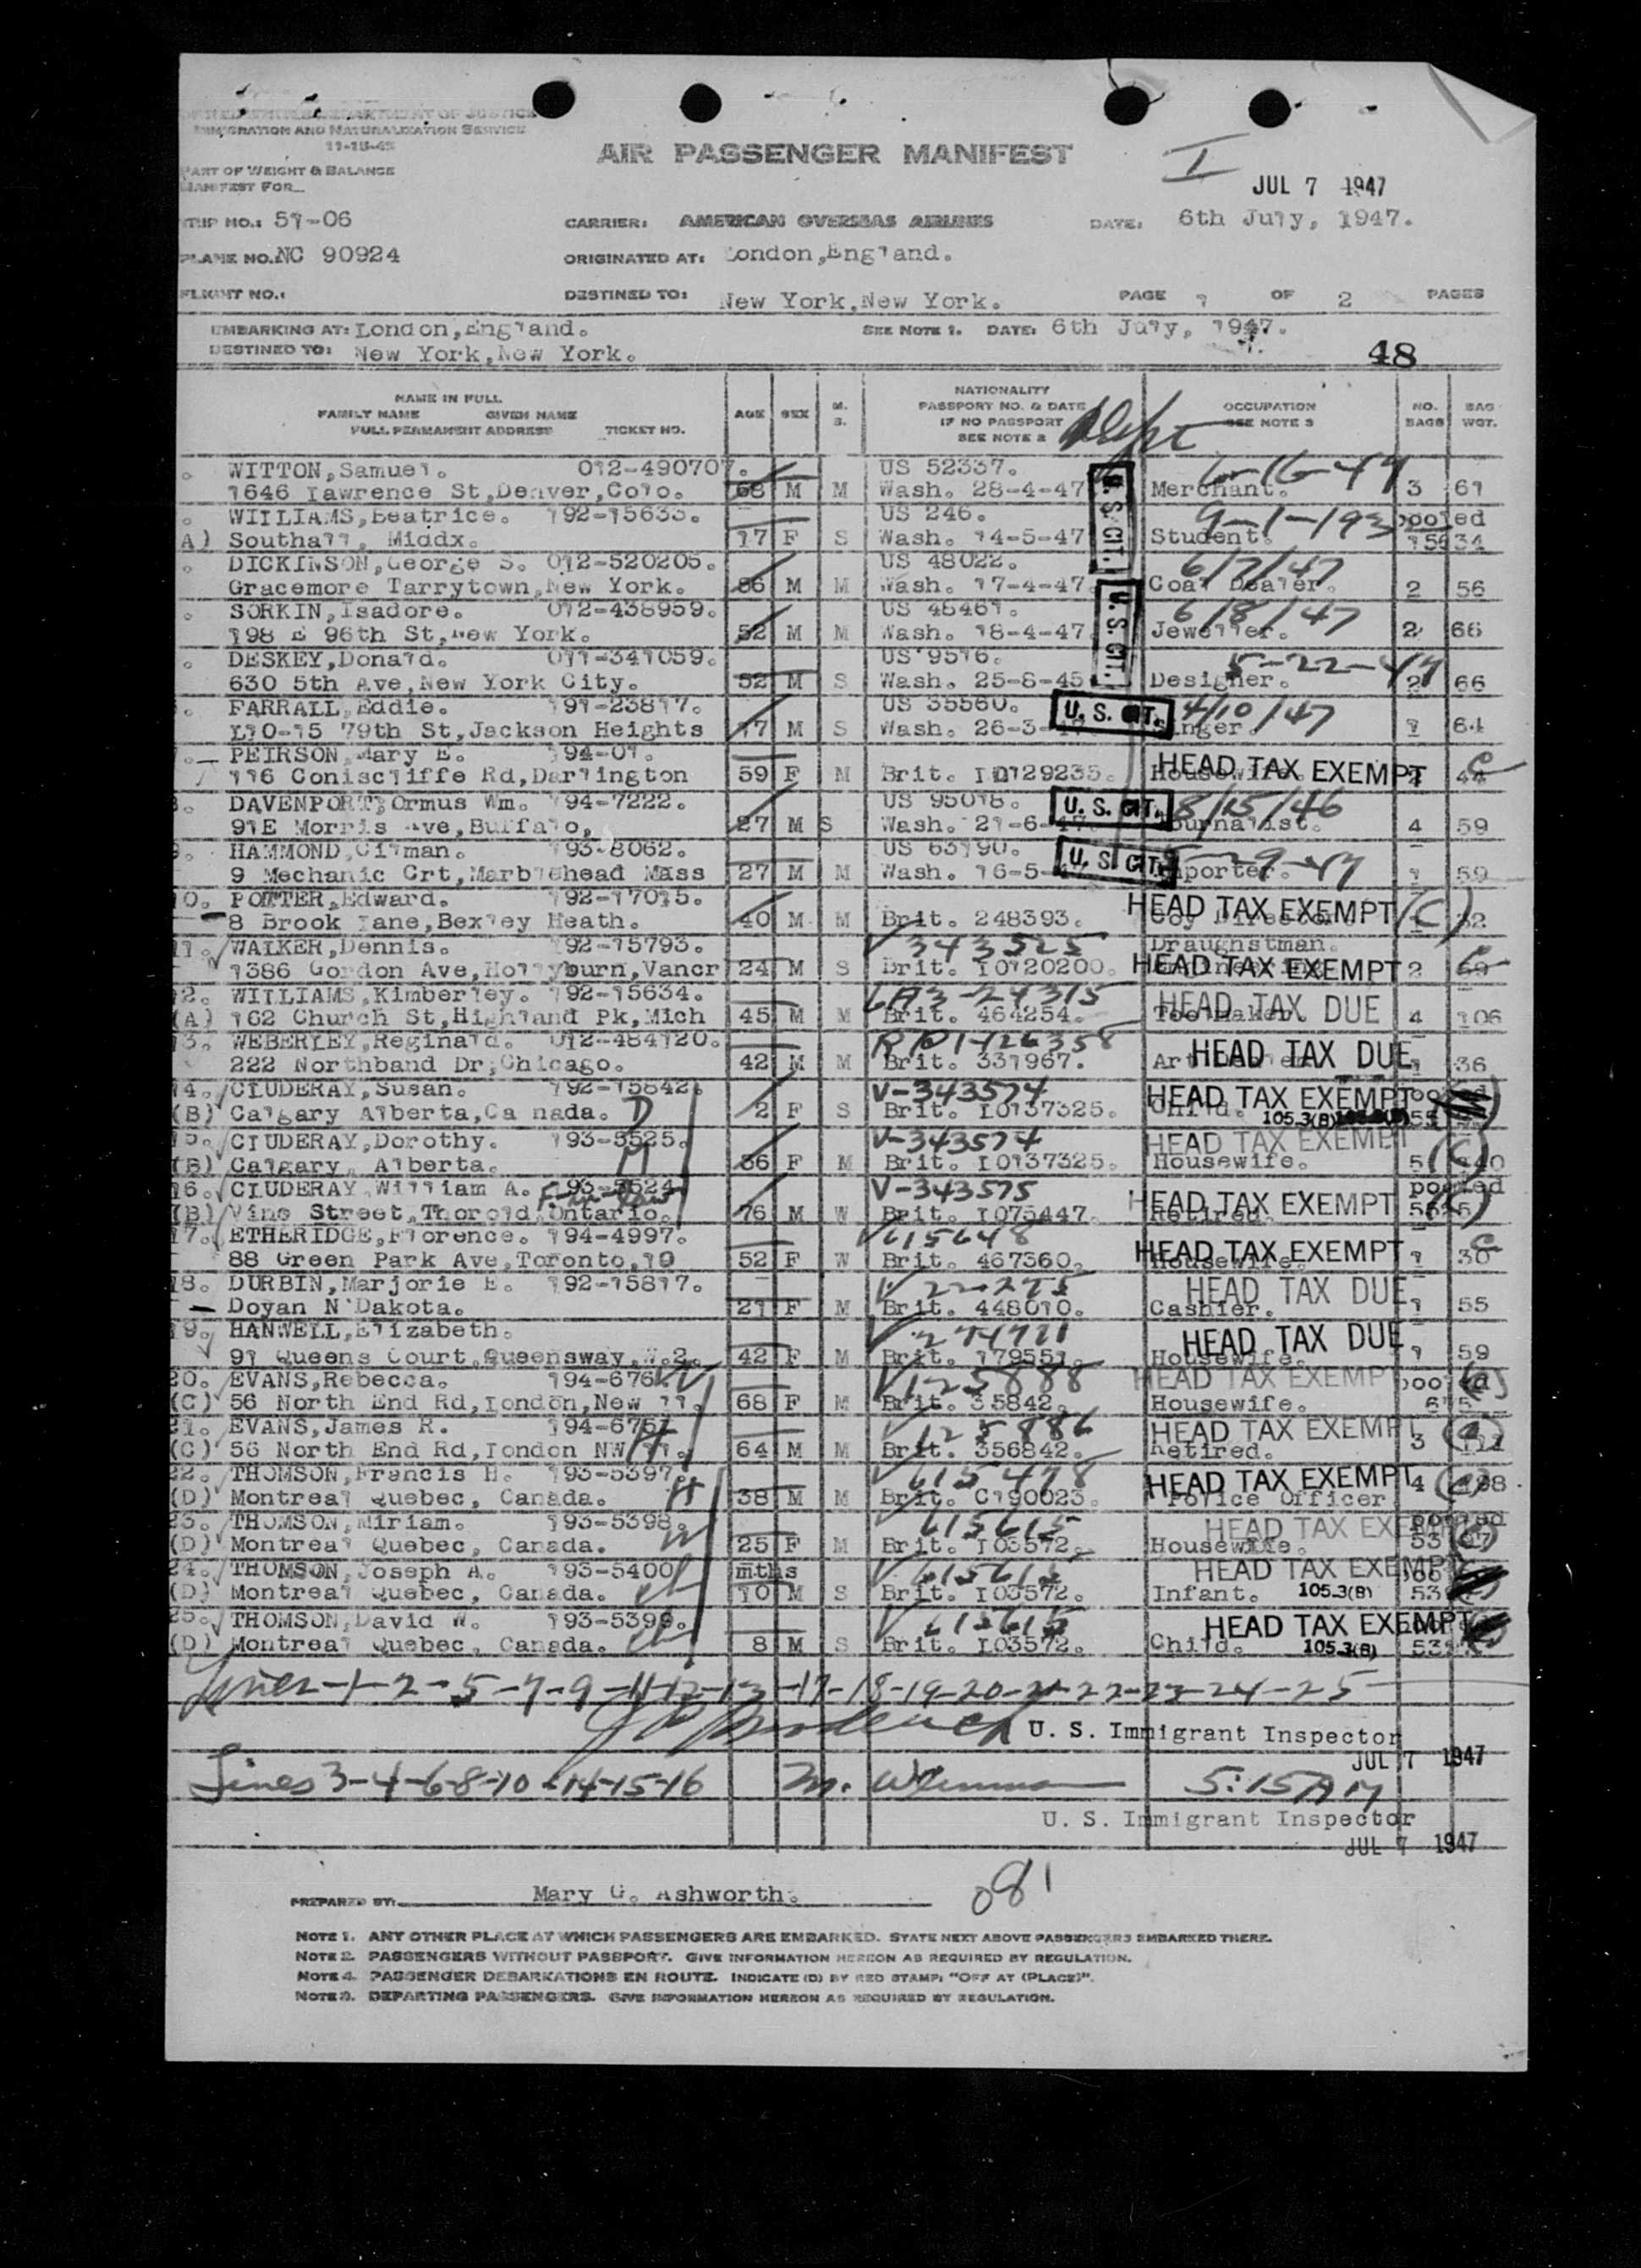 DEPARTMENT OF JUSTICE
IMMIGRATION AND NATURALIZATION SERVICE
11-15-45
AIR PASSENGER MANIFEST
I
JUL 7 1947
PART OF WEIGHT & BALANCE
MANIFEST FOR
TRIP NO.: 51-06 CARRIER: AMERICAN OVERSEAS AIRLINES DATE: 6th July, 1947.
PLANE NO. NC 90924 ORIGINATED AT: London,England.
FLIGHT NO.: DESTINED TO: New York,New York. PAGE 1 OF 2 PAGES
EMBARKING AT: London,England. SEE NOTE 1. DATE: 6th July, 1947.
DESTINED TO: New York,New York. 48
NAME IN FULL
FAMILY NAME GIVEN NAME
FULL PERMANENT ADDRESS TICKET NO.
AGE SEX M. S.
NATIONALITY
PASSPORT NO. & DATE
IF NO PASSPORT
SEE NOTE 2
OCCUPATION
SEE NOTE 3
NO. BAGS
BAG WGT.
Dept
WITTON,Samuel. 012-490707. US 52337. 6-16-47
1646 Lawrence St,Denver,Colo. 68 M M Wash. 28-4-47 Merchant. 3 61
WILLIAMS,Beatrice. 192-15633. US 246. 9-1-193 pooled
A) Southall, Middx. 17 F S Wash. 14-5-47 Student. 15634
DICKINSON,George S. 012-520205. US 48022. 6/7/47
Gracemore Tarrytown,New York. 86 M M Wash. 17-4-47 Coal Dealer. 2 56
SORKIN,Isadore. 012-438959. US 48461. 6/8/47
198 E 96th St,New York. 52 M M Wash. 18-4-47 Jeweller. 2 66
DESKEY,Donald. 011-341059. US 9516. 5-22-47
630 5th Ave,New York City. 52 M S Wash. 25-8-45 Designer. 2 66
U. S. CIT.
U. S. CIT.
FARRALL,Eddie. 191-23817. US 35560. U. S. CIT. 4/10/47
L10-15 79th St,Jackson Heights 17 M S Wash. 26-3- Singer. 1 64
PEIRSON,Mary E. 194-01.
116 Coniscliffe Rd,Darlington 59 F M Brit. L0129235. Housewife. HEAD TAX EXEMPT 44
DAVENPORT,Ormus Wm. 194-7222. US 95018. U. S. CIT. 8/15/46
91E Morris Ave,Buffalo, 27 M S Wash. 21-6-47. Journalist. 4 59
HAMMOND,Gilman. 193-8062. US 63190. U. S. CIT. 5-29-47
9 Mechanic Crt,Marblehead Mass 27 M M Wash. 16-5- 1 59
10. POTTER,Edward. 192-17015. HEAD TAX EXEMPT (C)
8 Brook Lane,Bexley Heath. 40 M M Brit. 248393. 32
11. WALKER,Dennis. 192-15793. V 343525 Draughstman.
1386 Gordon Ave,Hollyburn,Vancr 24 M S Brit. L0120200. HEAD TAX EXEMPT 2 59
12. WILLIAMS,Kimberley. 192-15634.
(A) 162 Church St,Highland Pk,Mich 45 M M Brit. 464254. Toolmaker. HEAD TAX DUE 4 106
13. WEBERLEY,Reginald. 012-484120.
222 Northband Dr,Chicago. 42 M M Brit. 331967. HEAD TAX DUE 1 36
14. CLUDERAY,Susan. 192-15842. V-343574 HEAD TAX EXEMPT
(B) Calgary Alberta,Ca nada. D 2 F S Brit. L0137325. Child. 105.3(B)
15. CLUDERAY,Dorothy. 193-5525. V-343574 HEAD TAX EXEMPT
(B) Calgary, Alberta. M 36 F M Brit. L0137325. Housewife. 5 (C)
16. CLUDERAY,William A. 193-5524 V-343575 HEAD TAX EXEMPT pooled
(B) Vine Street,Thorold,Ontario. 76 M W Brit. L075447. Retired.
17. ETHERIDGE,Florence. 194-4997. V615648
88 Green Park Ave,Toronto,10 52 F W Brit. 467360. Housewife. HEAD TAX EXEMPT 1 30
18. DURBIN,Marjorie E. 192-15817. V 22275 HEAD TAX DUE
Doyan N'Dakota. 21 F M Brit. 448010. Cashier. 1 55
19. HANWELL,Elizabeth. HEAD TAX DUE
91 Queens Court,Queensway,W.2. 42 F M Brit. 179551. Housewife. 1 59
20. EVANS,Rebecca. 194-676 W V125888 HEAD TAX EXEMPT
(C) 56 North End Rd,London,New 11. 68 F M Brit. 35842. Housewife.
21. EVANS,James R. 194-675 V 125886 HEAD TAX EXEMPT
(C) 56 North End Rd,London NW 11. H 64 M M Brit. 356842. Retired. 3
22. THOMSON,Francis H. 193-5397. V 615478 HEAD TAX EXEMPT
(D) Montreal Quebec, Canada. H 38 M M Brit. C190023. Police Officer 4 198
23. THOMSON,Miriam. 193-5398. V 615615 HEAD TAX EXEMPT
(D) Montreal Quebec, Canada. W 25 F M Brit. L03572. Housewife.
24. THOMSON,Joseph A. 193-5400 mths V615615 HEAD TAX EXEMPT
(D) Montreal Quebec, Canada. ch 10 M S Brit. L03572. Infant. 105.3(B)
25. THOMSON,David W. 193-5399. V 615615 HEAD TAX EXEMPT
(D) Montreal Quebec, Canada. ch 8 M S Brit. L03572. Child. 105.3(B)
Lines-1-2-5-7-9-11-12-13-17-18-19-20-21-22-23-24-25
U. S. Immigrant Inspector
JUL 7 1947
Lines 3-4-6-8-10-14-15-16 5:15AM
U. S. Immigrant Inspector
JUL 7 1947
081
PREPARED BY: Mary G. Ashworth.
NOTE 1. ANY OTHER PLACE AT WHICH PASSENGERS ARE EMBARKED. STATE NEXT ABOVE PASSENGERS EMBARKED THERE.
NOTE 2. PASSENGERS WITHOUT PASSPORT. GIVE INFORMATION HEREON AS REQUIRED BY REGULATION.
NOTE 4. PASSENGER DEBARKATIONS EN ROUTE. INDICATE (D) BY RED STAMP: "OFF AT (PLACE)".
NOTE 3. DEPARTING PASSENGERS. GIVE INFORMATION HEREON AS REQUIRED BY REGULATION.